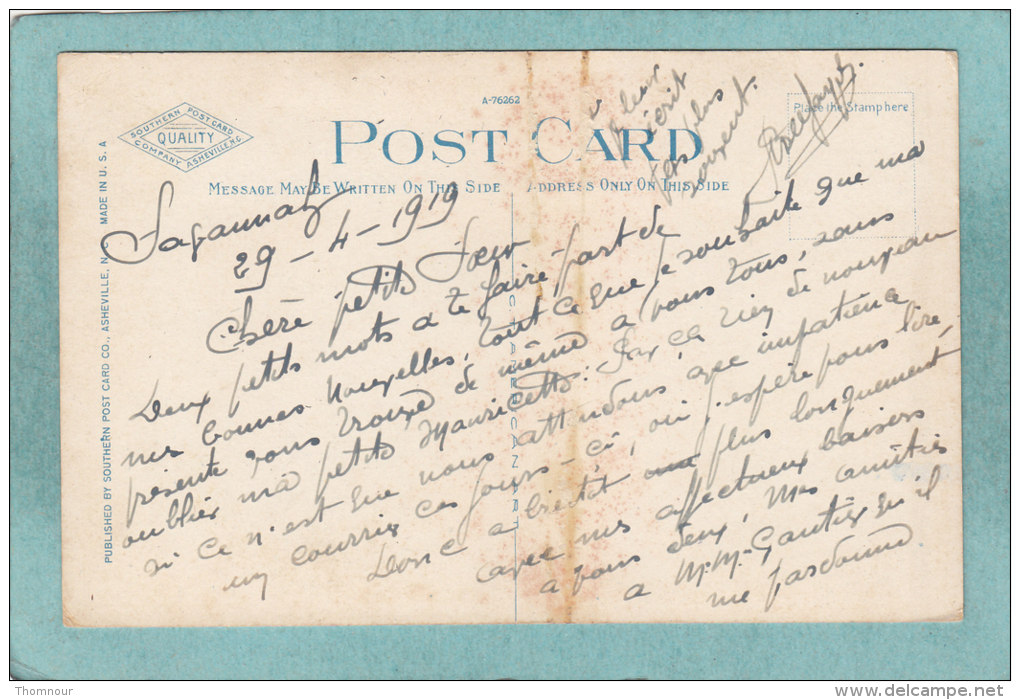 A-76262
SOUTHERN POST CARD
QUALITY
COMPANY ASHEVILLE, N.C.
POST CARD
Place the Stamp here
MESSAGE MAY BE WRITTEN ON THIS SIDE
ADDRESS ONLY ON THIS SIDE
PUBLISHED BY SOUTHERN POST CARD CO., ASHEVILLE, N. MADE IN U. S. A
Savannah
29-4-1919
Chère petite Sœur
Deux petits mots a te faire part de
nos bonnes nouvelles, tout ce que je souhaite que ma
présente vous trouve de même a vous tous, sans
oublier ma petite Mauricette. Par ça rien de nouveau
si ce n'est que nous attendons avec impatience
un courrier ces jours-ci, où j'espère vous lire,
Donc a bientôt plus longuement
avec mes affectueux baisers
a vous deux, Mes amitiés
a M. M. Gautier qu'il
me pardonne
leur
écrit
pas plus
souvent.